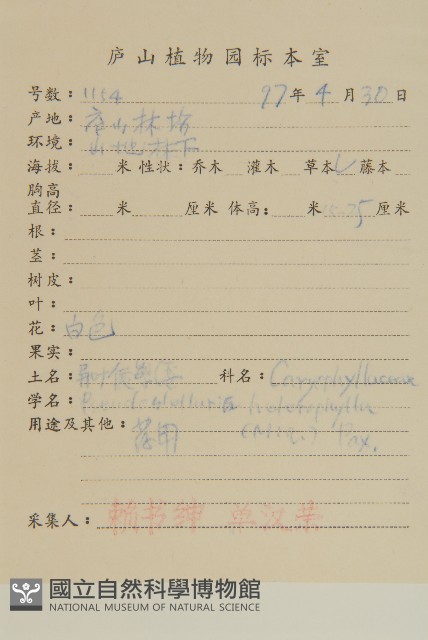 庐山植物园标本室
号数：1154 97年4月30日
产地：庐山林场
环境：山地林下
海拔： 米 性状：乔木 灌木 草本✓ 藤本
胸高
直径： 米 厘米 体高： 米 25厘米
根：
茎：
树皮：
叶：
花：白色
果实：
土名： 科名：Caryophyllaceae
学名：Pseudostellaria heterophylla
用途及其他：药用 (Miq.) Pax.
采集人：赖书绅 单汉荣
國立自然科學博物館
NATIONAL MUSEUM OF NATURAL SCIENCE